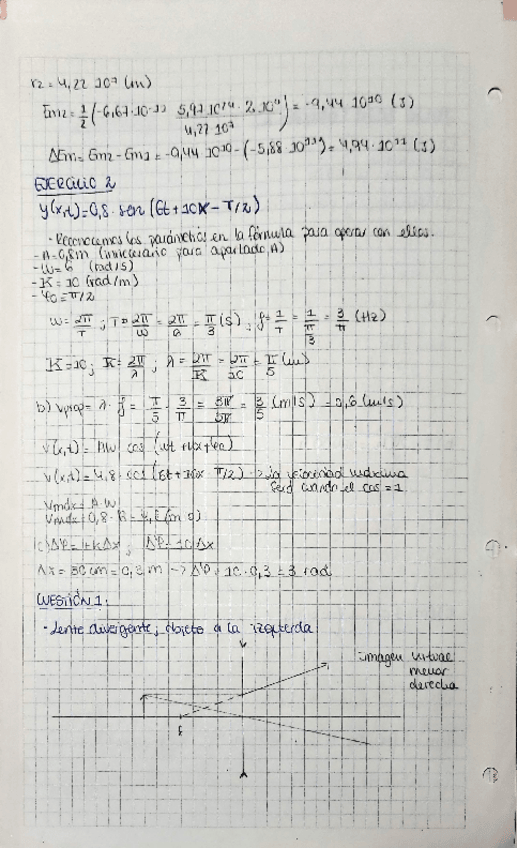 r2 = 4,22 · 10⁷ (m)
Em2 = 1/2 (-6,67·10⁻¹¹ 5,97·10²⁴ · 2·10⁴ / 4,22·10⁷) = -9,44·10¹⁰ (J)
ΔEm = Em2 - Em1 =
EJERCICIO 2
y(x,t) = 0,8 · sen (6t + 10x - π/2)
- Reconocemos los parámetros en la fórmula para operar con ellos.
- A = 0,8m (innecesario para apartado A)
- W = 6 (rad/s)
- K = 10 (rad/m)
- φ0 = π/2
W = 2π/T ; T = 2π/W = 2π/6 = π/3 (s) , f = 1/T = 1/(π/3) = 3/π (Hz)
K = 10 ; K = 2π/λ ; λ = 2π/K = 2π/10 = π/5 (m)
b) Vprop = λ · f = π/5 · 3/π = 3π/5π = 3/5 (m/s) = 0,6 (m/s)
v(x,t) = AW cos (wt + kx + φ0)
v(x,t) = 4,8 · cos (6t + 10x - π/2) -> la velocidad máxima
será cuando el cos = 1
Vmáx = A · W
Vmáx = 0,8 · 6 = 4,8 (m/s)
c) ΔΦ = +KΔx ; ΔΦ = 10Δx
Δx = 30 cm = 0,3 m -> ΔΦ = 10 · 0,3 = 3 rad
CUESTIÓN 1:
- Lente divergente, objeto a la izquierda
imagen virtual
menor
derecha
F